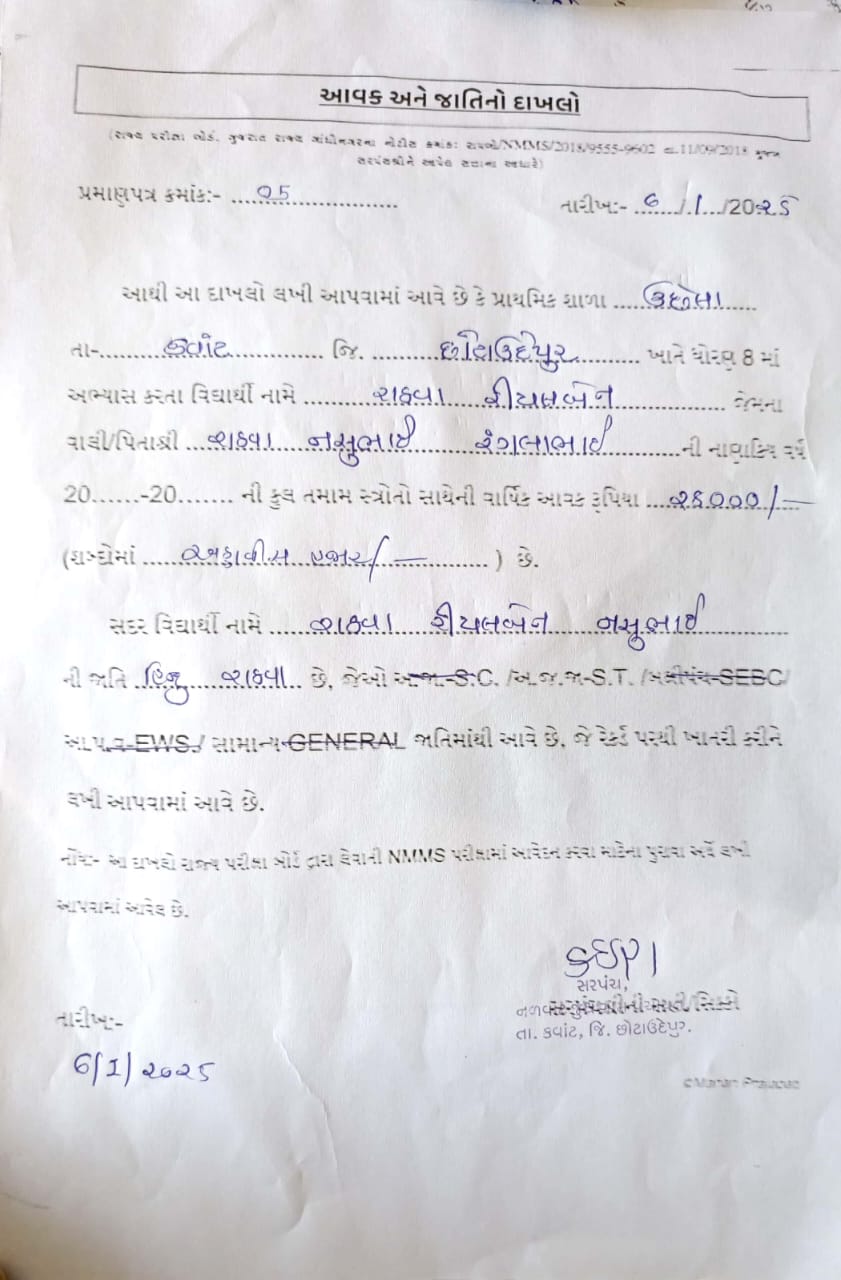 આવક અને જાતિનો દાખલો
(રાજ્ય પરીક્ષા બોર્ડ, ગુજરાત રાજ્ય ગાંધીનગરના નોટીસ ક્રમાંક: રાપબો/NMMS/2018/9555-9602 તા.11/09/2018 મુજબ
સરપંચશ્રીને આપેલ સત્તાના આધારે)
પ્રમાણપત્ર ક્રમાંક:- ....05....................
તારીખ:- ..6..../.1.../2025
આથી આ દાખલો લખી આપવામાં આવે છે કે પ્રાથમિક શાળા
તા-..........કવાંટ............... જિ. ..........છોટાઉદેપુર.......... ખાતે ધોરણ 8 માં
અભ્યાસ કરતા વિદ્યાર્થી નામે ..........રાઠવા રીયલબેન............... જેમના
વાલી/પિતાશ્રી ...રાઠવા નસુભાઈ રંગલાભાઈ..........ની નાણાકિય વર્ષ
20......-20....... ની કુલ તમામ સ્ત્રોતો સાથેની વાર્ષિક આવક રૂપિયા ...28000/-
(શબ્દોમાં ......અઠ્ઠાવીસ હજાર/-............) છે.
સદર વિદ્યાર્થી નામે ......રાઠવા રીયલબેન નસુભાઈ..........
ની જાતિ .હિન્દુ રાઠવા.. છે, જેઓ અ.જા.-S.C. /અ.જ.જા-S.T. /બક્ષીપંચ-SEBC/
આ.પ.વ-EWS / સામાન્ય-GENERAL જાતિમાંથી આવે છે, જે રેકર્ડ પરથી ખાતરી કરીને
લખી આપવામાં આવે છે.
નોંધ:- આ દાખલો રાજ્ય પરીક્ષા બોર્ડ દ્વારા લેવાની NMMS પરીક્ષામાં આવેદન કરવા માટેના પુરાવા અર્થે લખી
આપવામાં આવેલ છે.
સરપંચ,
સરપંચશ્રીની સહી/સિક્કો
તા. કવાંટ, જિ. છોટાઉદેપુર.
તારીખ:-
6/1/2025